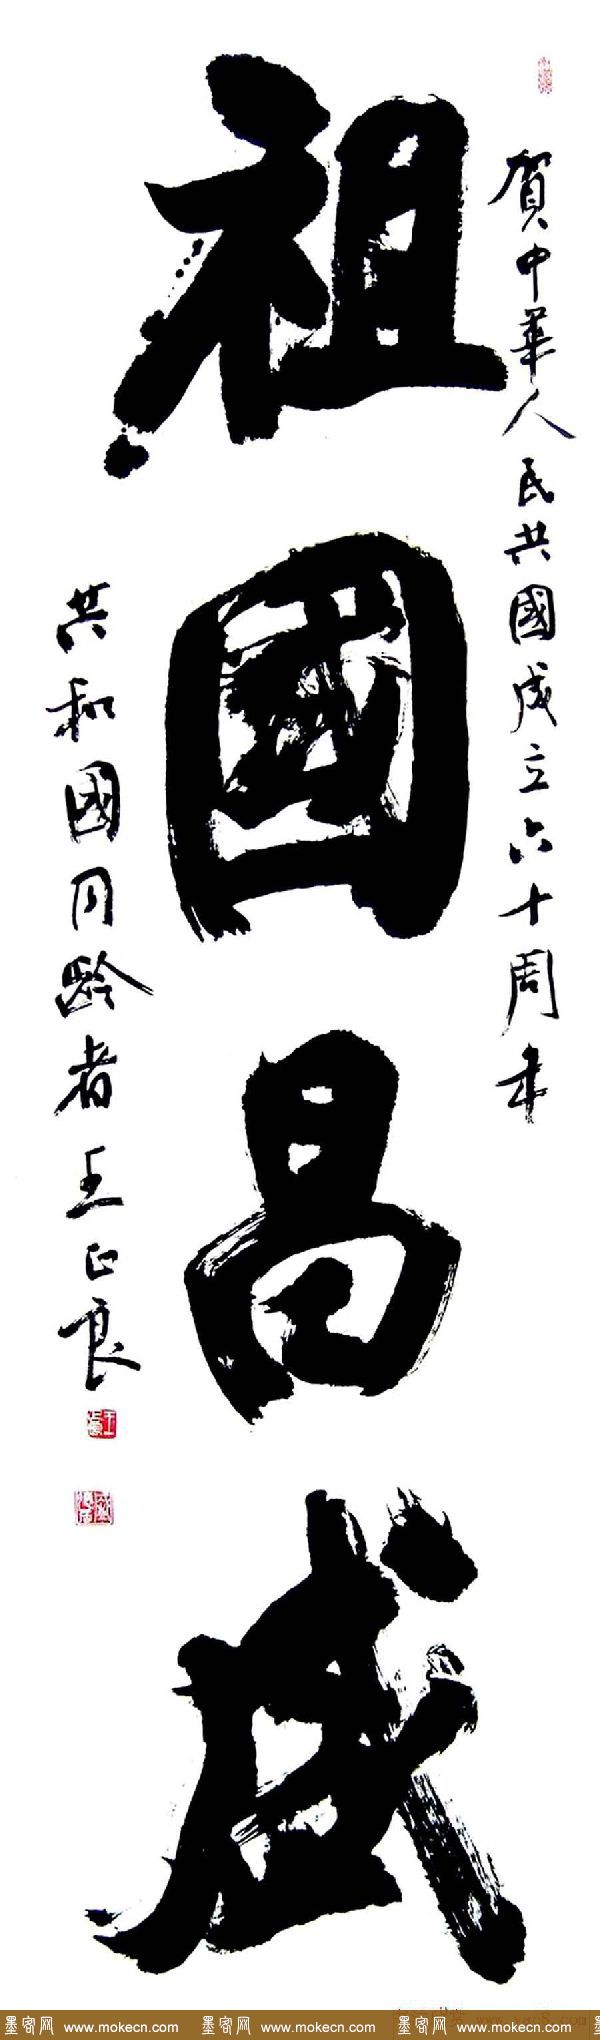 賀中華人民共國成立六十周年
祖國昌盛
共和國同齡者王正良
墨客网 www.mokecn.com 墨客网 www.mokecn.com 墨客网 www.mokecn.com